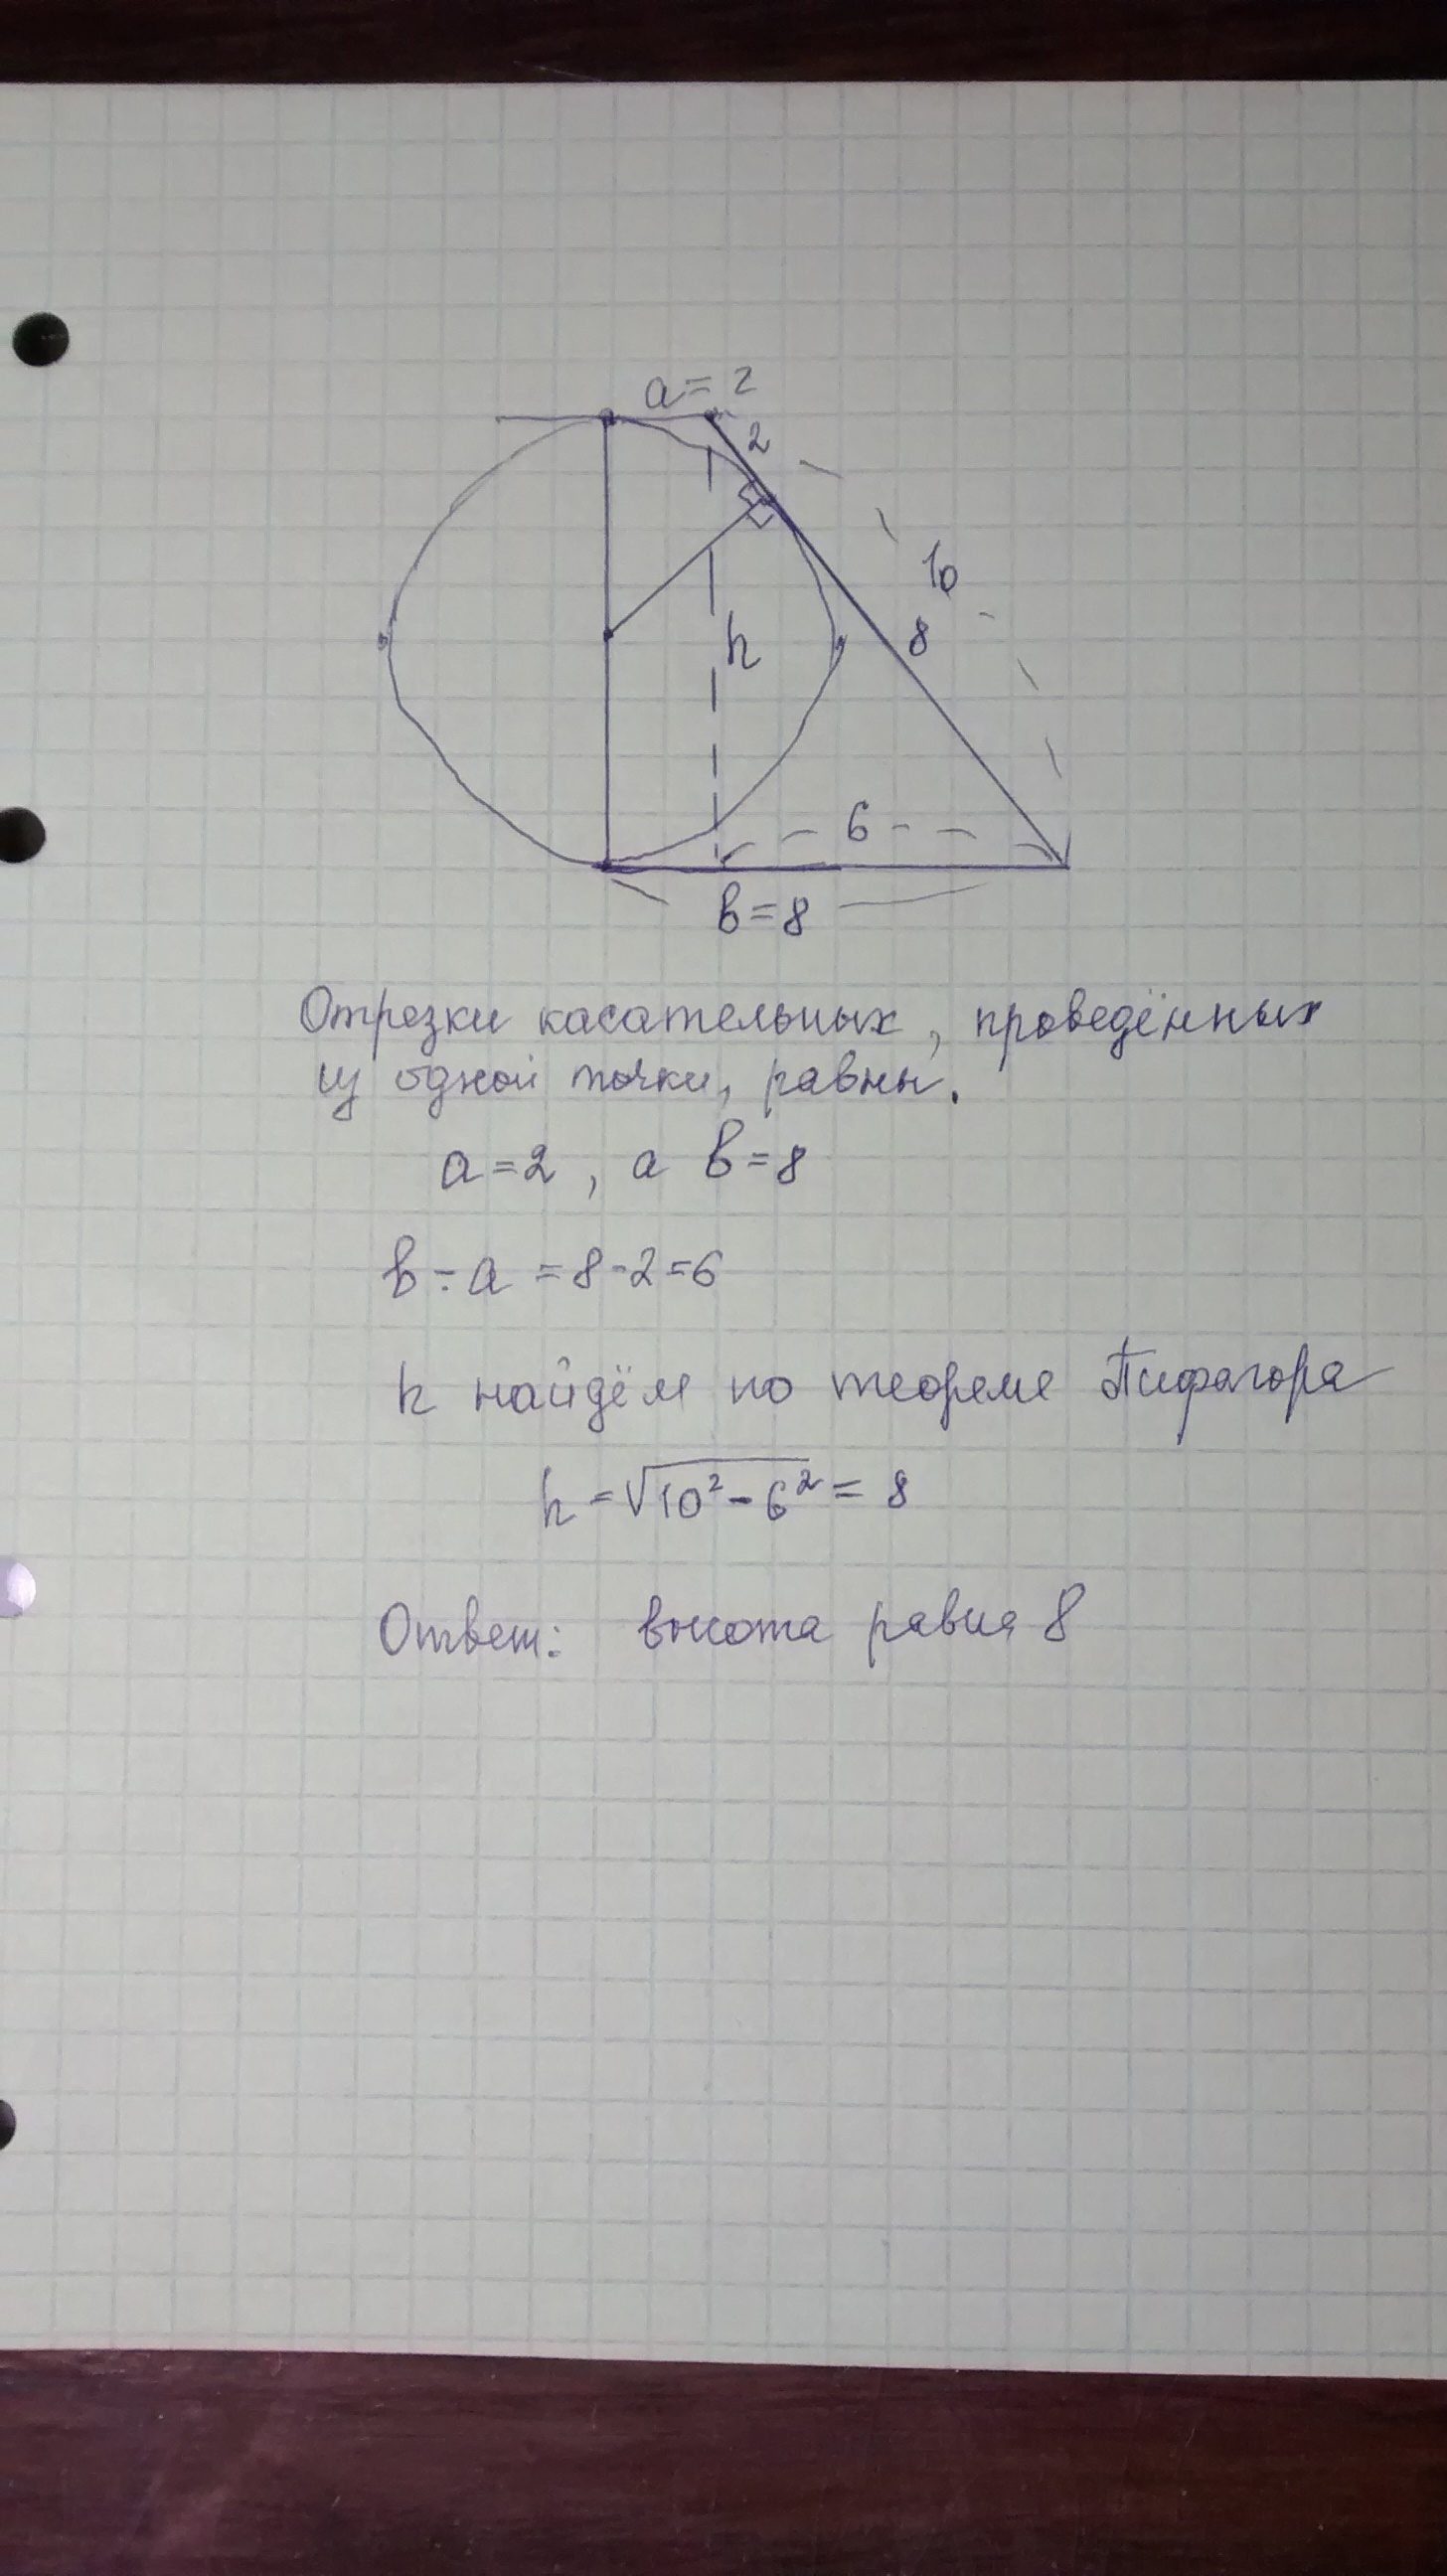 a = 2
2
10
h
8
6
в = 8
Отрезки касательных, проведённых
из одной точки, равны.
a = 2 , а в = 8
в - a = 8 - 2 = 6
h найдём по теореме Пифагора
h = √10² - 6² = 8
Ответ: высота равна 8